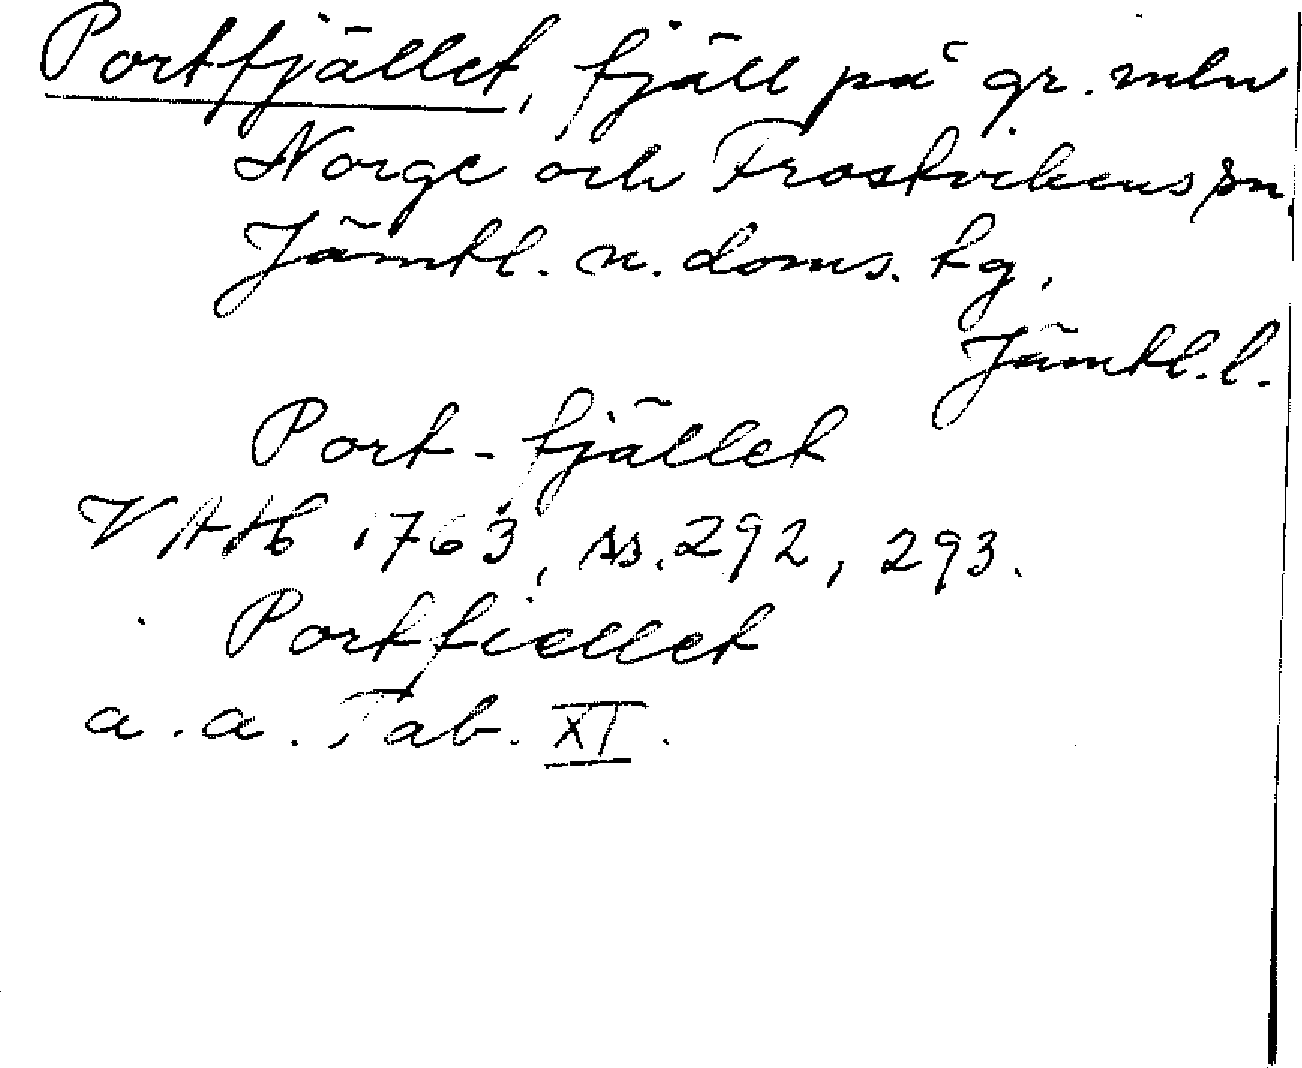 Portfjället, fjäll på gr. mln
Norge och Frostvikens sn,
Jämtl. n. doms. tg,
Jämtl. l.
Port-fjället
VAH 1763, ss. 292, 293.
Portfiellet
a. a. Tab. XI.